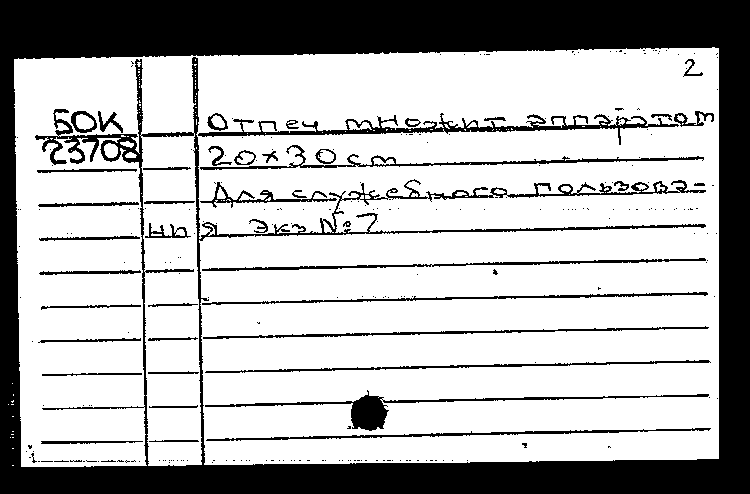 2
БОК Отпеч множит аппаратом
23708 20×30 см
Для служебного пользова-
ния Экз. №7